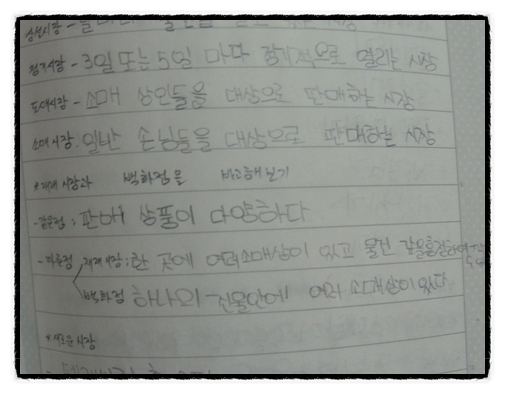 상설시장 -
정기시장 - 3일 또는 5일 마다 정기적으로 열리는 시장
도매시장 - 소매 상인들을 대상으로 판매하는 시장
소매시장. 일반 손님들을 대상으로 판매하는 시장
*재래시장과 백화점을 비교해보기
- 같은점 : 판매 상품이 다양하다
- 다른점 재래시장 : 한 곳에 여러소매상이 있고 물건
백화점 하나의 건물안에 여러 소매상이 있다
*새로운 시장